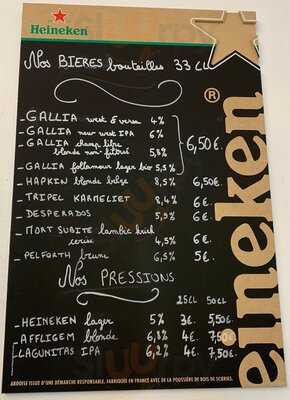 Heineken
Nos BIERES bouteilles 33 CL
- GALLIA west & verse 4%
- GALLIA new west IPA 6%
- GALLIA champ libre
blonde non-filtrée 5,8%
- GALLIA follamour lager bio 5,5%
6,50€
- HAPKIN blonde belge 8,5% 6,50€.
- TRIPEL KARMELIET 8,4% 6€.
- DESPERADOS 5,9% 6€.
- MORT SUBITE lambic kriek
cerise 4,5% 6€.
- PELFORTH brune 6,5% 5€.
Nos PRESSIONS
25CL 50CL
- HEINEKEN lager 5% 3€ 5,50€.
- AFFLIGEM blonde 6,8% 4€ 7,50€.
- LAGUNITAS IPA 6,2% 4€ 7,50€.
ARDOISE ISSUE D'UNE DÉMARCHE RESPONSABLE, FABRIQUÉE EN FRANCE AVEC DE LA POUSSIÈRE DE BOIS DE SCIERIES.
®
eineken